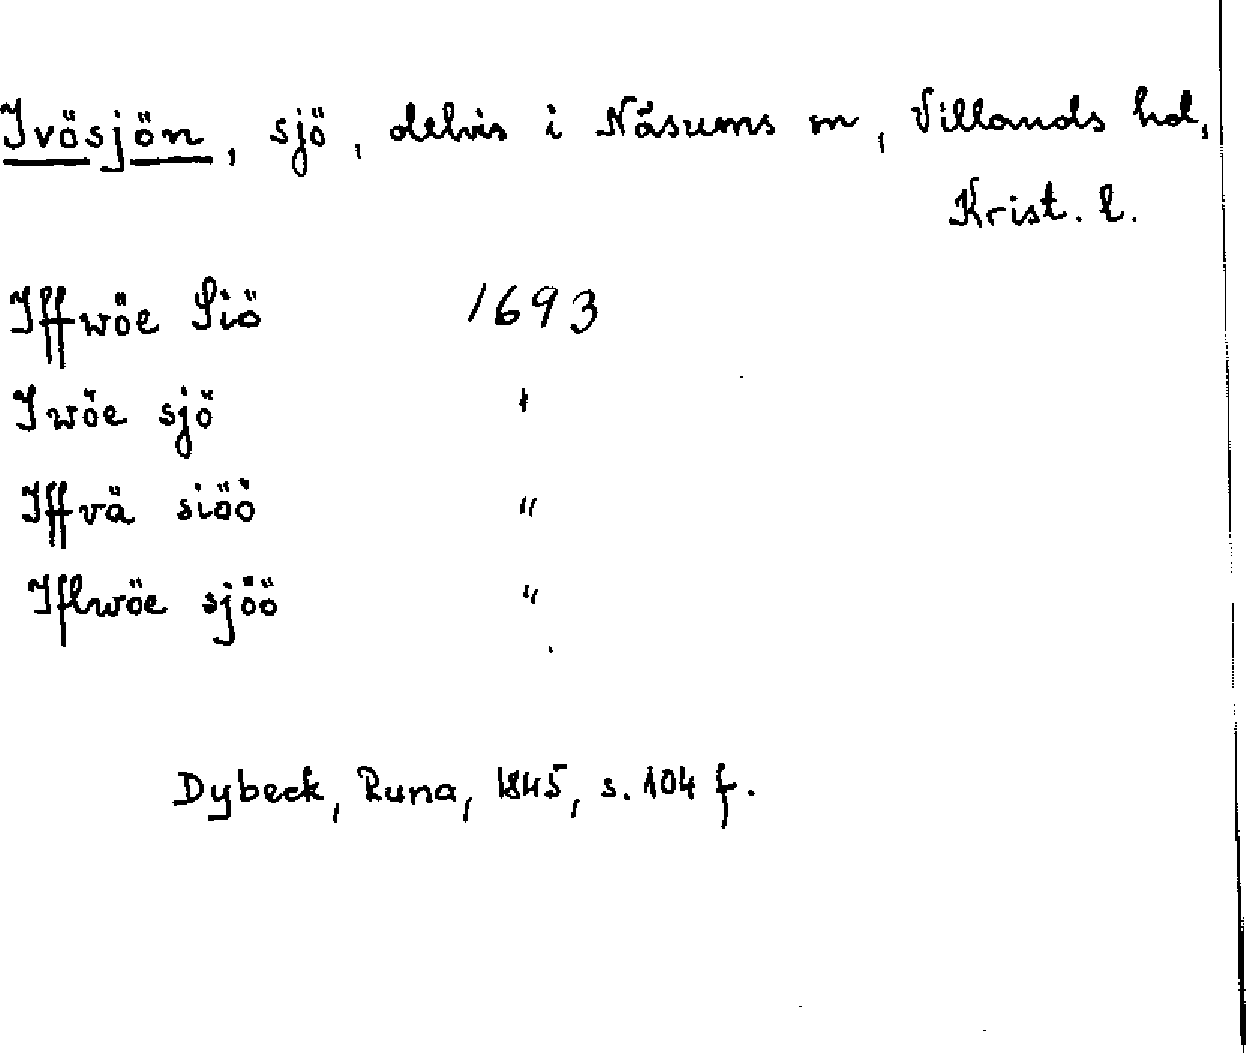 Ivösjön, sjö, delvis i Näsums sn, Villands hd,
Krist. l.
Iffwöe Siö 1693
Iwöe sjö "
Iffvä siöö "
Iflwöe sjöö "
Dybeck, Runa, 1845, s. 104 f.